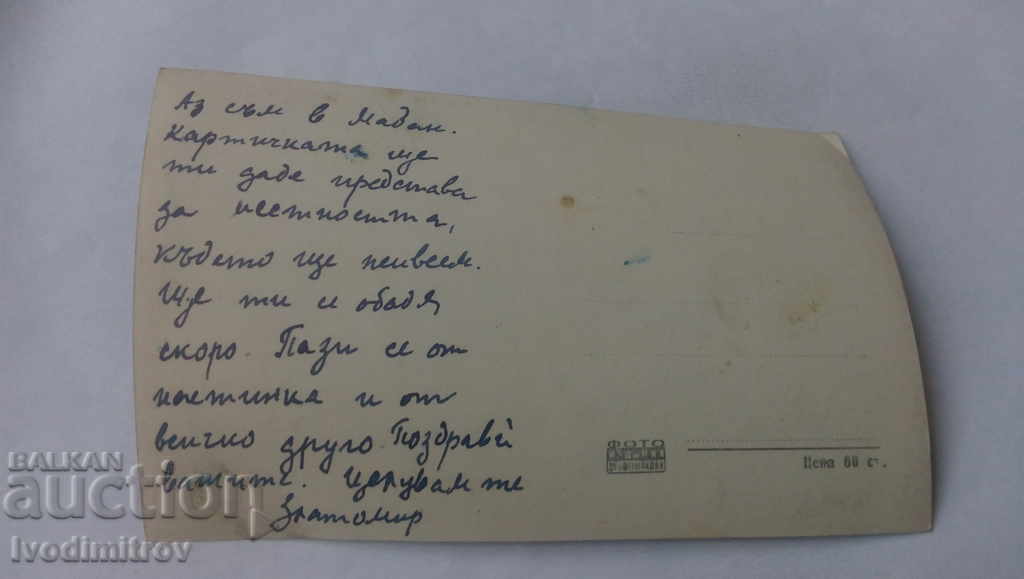 Аз съм в Мадан.
Картичката ще
ти даде представа
за местността,
където ще живеем.
Ще ти се обадя
скоро. Пази се от
настинка и от
всичко друго. Поздрави
вашите. Целувам те
Златомир
ФОТО
Цена 60 ст.
BALKAN
auction
Ivodimitrov